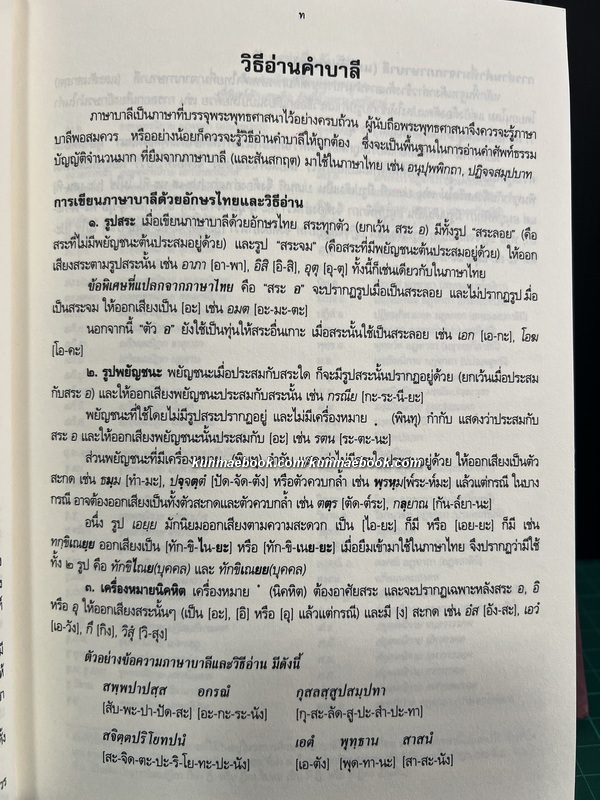 ท
วิธีอ่านคำบาลี
ภาษาบาลีเป็นภาษาที่บรรจุพระพุทธศาสนาไว้อย่างครบถ้วน ผู้นับถือพระพุทธศาสนาจึงควรจะรู้ภาษา
บาลีพอสมควร หรืออย่างน้อยก็ควรจะรู้วิธีอ่านคำบาลีให้ถูกต้อง ซึ่งจะเป็นพื้นฐานในการอ่านคำศัพท์ธรรม
บัญญัติจำนวนมาก ที่ยืมจากภาษาบาลี (และสันสกฤต) มาใช้ในภาษาไทย เช่น อนุปุพพิกถา, ปฏิจจสมุปบาท
การเขียนภาษาบาลีด้วยอักษรไทยและวิธีอ่าน
๑. รูปสระ เมื่อเขียนภาษาบาลีด้วยอักษรไทย สระทุกตัว (ยกเว้น สระ อ) มีทั้งรูป “สระลอย” (คือ
สระที่ไม่มีพยัญชนะต้นประสมอยู่ด้วย) และรูป “สระจม” (คือสระที่มีพยัญชนะต้นประสมอยู่ด้วย) ให้ออก
เสียงสระตามรูปสระนั้น เช่น อาภา [อา-พา], อิสิ [อิ-สิ], อุตุ [อุ-ตุ] ทั้งนี้ก็เช่นเดียวกับในภาษาไทย
ข้อพิเศษที่แปลกจากภาษาไทย คือ “สระ อ” จะปรากฏรูปเมื่อเป็นสระลอย และไม่ปรากฏรูป เมื่อ
เป็นสระจม ให้ออกเสียงเป็น [อะ] เช่น อมต [อะ-มะ-ตะ]
นอกจากนี้ “ตัว อ” ยังใช้เป็นทุ่นให้สระอื่นเกาะ เมื่อสระนั้นใช้เป็นสระลอย เช่น เอก [เอ-กะ], โอฆ
[โอ-คะ]
๒. รูปพยัญชนะ พยัญชนะเมื่อประสมกับสระใด ก็จะมีรูปสระนั้นปรากฏอยู่ด้วย (ยกเว้นเมื่อประสม
กับสระ อ) และให้ออกเสียงพยัญชนะประสมกับสระนั้น เช่น กรณีย [กะ-ระ-นี-ยะ]
พยัญชนะที่ใช้โดยไม่มีรูปสระปรากฏอยู่ และไม่มีเครื่องหมาย ฺ (พินทุ) กำกับ แสดงว่าประสมกับ
สระ อ และให้ออกเสียงพยัญชนะนั้นประสมกับ [อะ] เช่น รตน [ระ-ตะ-นะ]
ส่วนพยัญชนะที่มีเครื่องหมาย ฺ (พินทุ) กำกับ แสดงว่าไม่มีสระใดประสมอยู่ด้วย ให้ออกเสียงเป็นตัว
kunnaebook.com/kunnaebook.com
สะกด เช่น ธมฺม [ทำ-มะ], ปจฺจตฺตํ [ปัด-จัด-ตัง] หรือตัวควบกล้ำ เช่น พฺรหฺม[พ๎ระ-ห๎มะ] แล้วแต่กรณี ในบาง
กรณี อาจต้องออกเสียงเป็นทั้งตัวสะกดและตัวควบกล้ำ เช่น ตตฺร [ตัด-ต๎ระ], กลฺยาณ [กัน-ล๎ยา-นะ]
อนึ่ง รูป เอยฺย มักนิยมออกเสียงตามความสะดวก เป็น [ไอ-ยะ] ก็มี หรือ [เอย-ยะ] ก็มี เช่น
ทกฺขิเณยฺย ออกเสียงเป็น [ทัก-ขิ-ไน-ยะ] หรือ [ทัก-ขิ-เนย-ยะ] เมื่อยืมเข้ามาใช้ในภาษาไทย จึงปรากฏว่ามีใช้
ทั้ง ๒ รูป คือ ทักขิไณย(บุคคล) และ ทักขิเณยย(บุคคล)
๓. เครื่องหมายนิคหิต เครื่องหมาย ํ (นิคหิต) ต้องอาศัยสระ และจะปรากฏเฉพาะหลังสระ อ, อิ
หรือ อุ ให้ออกเสียงสระนั้นๆ (เป็น [อะ], [อิ] หรือ [อุ] แล้วแต่กรณี) และมี [ง] สะกด เช่น อํส [อัง-สะ], เอวํ
[เอ-วัง], กึ [กิง], วิสุํ [วิ-สุง]
ตัวอย่างข้อความภาษาบาลีและวิธีอ่าน มีดังนี้
สพฺพปาปสฺส อกรณํ กุสลสฺสูปสมฺปทา
[สับ-พะ-ปา-ปัด-สะ] [อะ-กะ-ระ-นัง] [กุ-สะ-ลัด-สู-ปะ-สำ-ปะ-ทา]
สจิตฺตปริโยทปนํ เอตํ พุทฺธาน สาสนํ
[สะ-จิด-ตะ-ปะ-ริ-โย-ทะ-ปะ-นัง] [เอ-ตัง] [พุด-ทา-นะ] [สา-สะ-นัง]